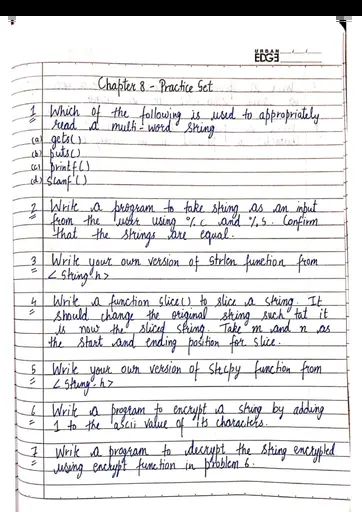 URBAN
EDGE
Chapter 8 - Practice Set
1 Which of the following is used to appropriately
read a multi-word string
(a) gets()
(b) puts()
(c) printf()
(d) scanf()
2 Write a program to take string as an input
from the user using %c and %s. Confirm
that the strings are equal.
3 Write your own version of strlen function from
<string.h>
4 Write a function slice() to slice a string. It
should change the original string such tat it
is now the sliced string. Take m and n as
the start and ending position for slice.
5 Write your own version of strcpy function from
<string.h>
6 Write a program to encrypt a string by adding
1 to the ascii value of its characters.
7 Write a program to decrypt the string encrypted
using encrypt function in problem 6.